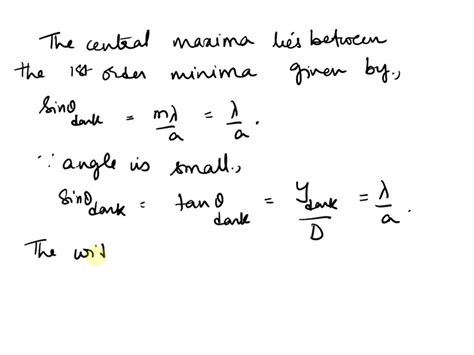 The central maxima lies between
the 1st order minima given by.,
sinθ_dark = mλ/a = λ/a.
∵ angle is small.,
sinθ_dark = tanθ_dark = y_dark/D = λ/a.
The wid